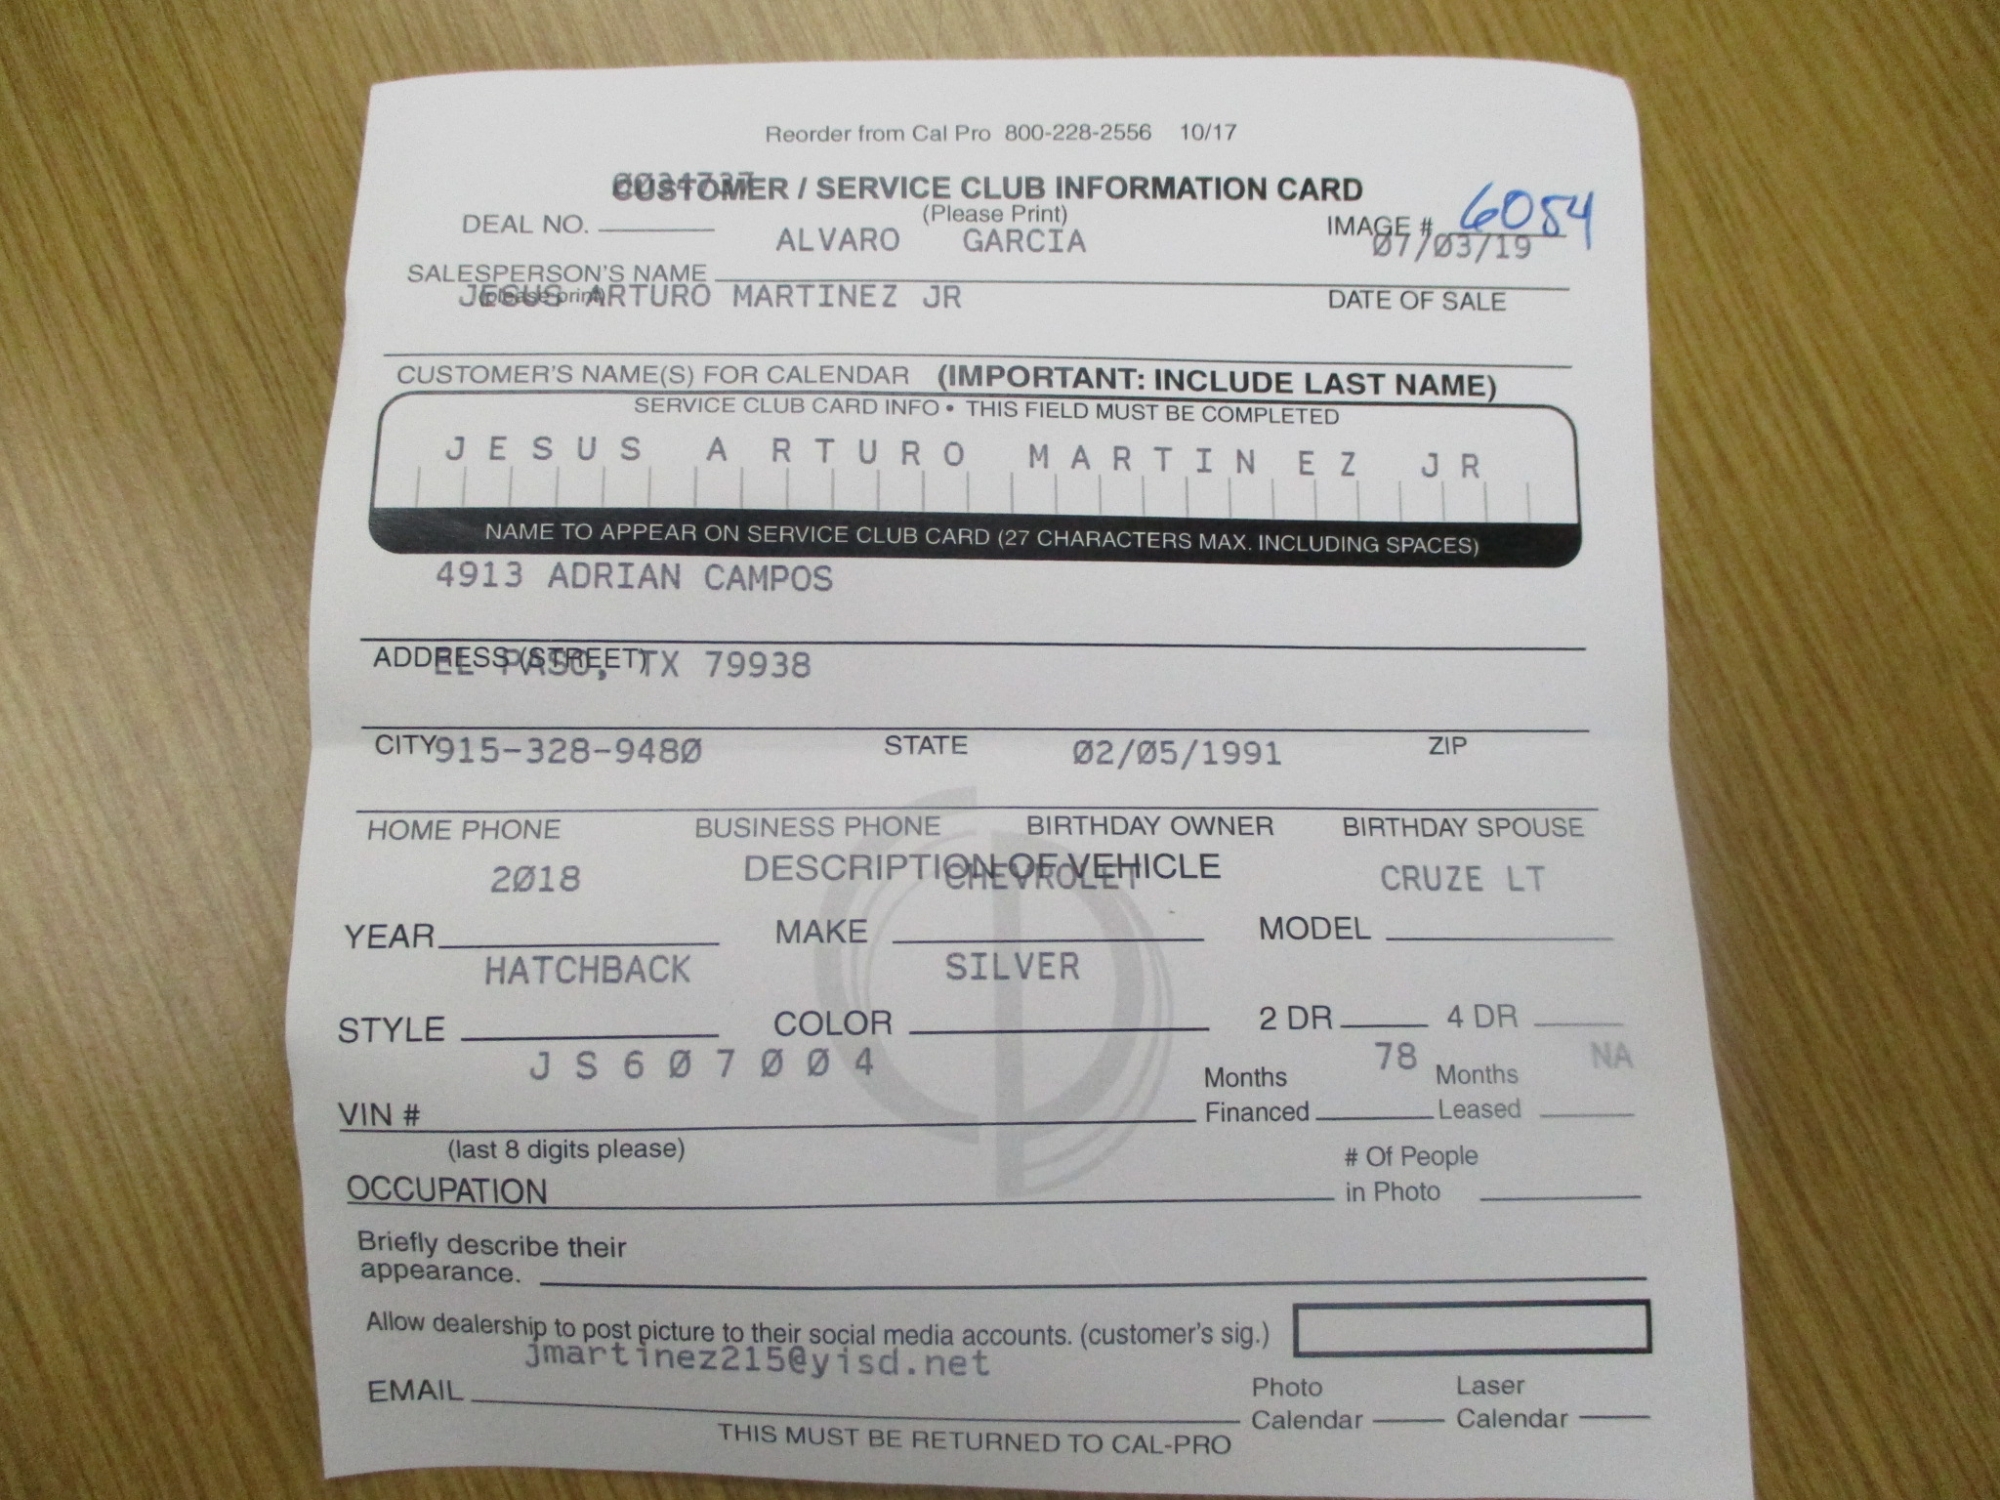 Reorder from Cal Pro 800-228-2556 10/17
CUSTOMER / SERVICE CLUB INFORMATION CARD
(Please Print)
DEAL NO. IMAGE # 6054
ALVARO GARCIA 07/03/19
SALESPERSON'S NAME
(please print) DATE OF SALE
JESUS ARTURO MARTINEZ JR
CUSTOMER'S NAME(S) FOR CALENDAR (IMPORTANT: INCLUDE LAST NAME)
SERVICE CLUB CARD INFO • THIS FIELD MUST BE COMPLETED
JESUS ARTURO MARTINEZ JR
NAME TO APPEAR ON SERVICE CLUB CARD (27 CHARACTERS MAX. INCLUDING SPACES)
4913 ADRIAN CAMPOS
ADDRESS (STREET)
EL PASO, TX 79938
CITY STATE ZIP
915-328-9480 02/05/1991
HOME PHONE BUSINESS PHONE BIRTHDAY OWNER BIRTHDAY SPOUSE
DESCRIPTION OF VEHICLE
2018 CHEVROLET CRUZE LT
YEAR MAKE MODEL
HATCHBACK SILVER
STYLE COLOR 2 DR 4 DR
JS607004 78 NA
VIN # Months Financed Months Leased
(last 8 digits please)
OCCUPATION # Of People in Photo
Briefly describe their
appearance.
Allow dealership to post picture to their social media accounts. (customer's sig.)
jmartinez215@yisd.net
EMAIL Photo Calendar Laser Calendar
THIS MUST BE RETURNED TO CAL-PRO